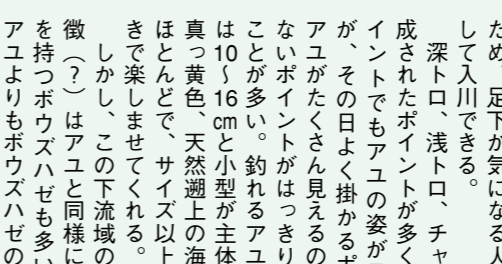 ため、足下が気になる人
して入川できる。
深トロ、浅トロ、チャ
成されたポイントが多く
イントでもアユの姿が
が、その日よく掛かるポ
アユがたくさん見えるの
ないポイントがはっきり
ことが多い。釣れるアユ
は10〜16㎝と小型が主体
真っ黄色、天然遡上の海
ほとんどで、サイズ以上
きで楽しませてくれる。
しかし、この下流域の
徴（？）はアユと同様に
を持つボウズハゼも多い
アユよりもボウズハゼの